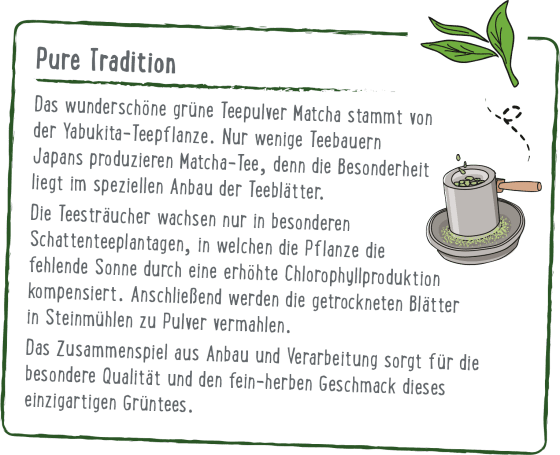 Pure Tradition
Das wunderschöne grüne Teepulver Matcha stammt von
der Yabukita-Teepflanze. Nur wenige Teebauern
Japans produzieren Matcha-Tee, denn die Besonderheit
liegt im speziellen Anbau der Teeblätter.
Die Teesträucher wachsen nur in besonderen
Schattenteeplantagen, in welchen die Pflanze die
fehlende Sonne durch eine erhöhte Chlorophyllproduktion
kompensiert. Anschließend werden die getrockneten Blätter
in Steinmühlen zu Pulver vermahlen.
Das Zusammenspiel aus Anbau und Verarbeitung sorgt für die
besondere Qualität und den fein-herben Geschmack dieses
einzigartigen Grüntees.